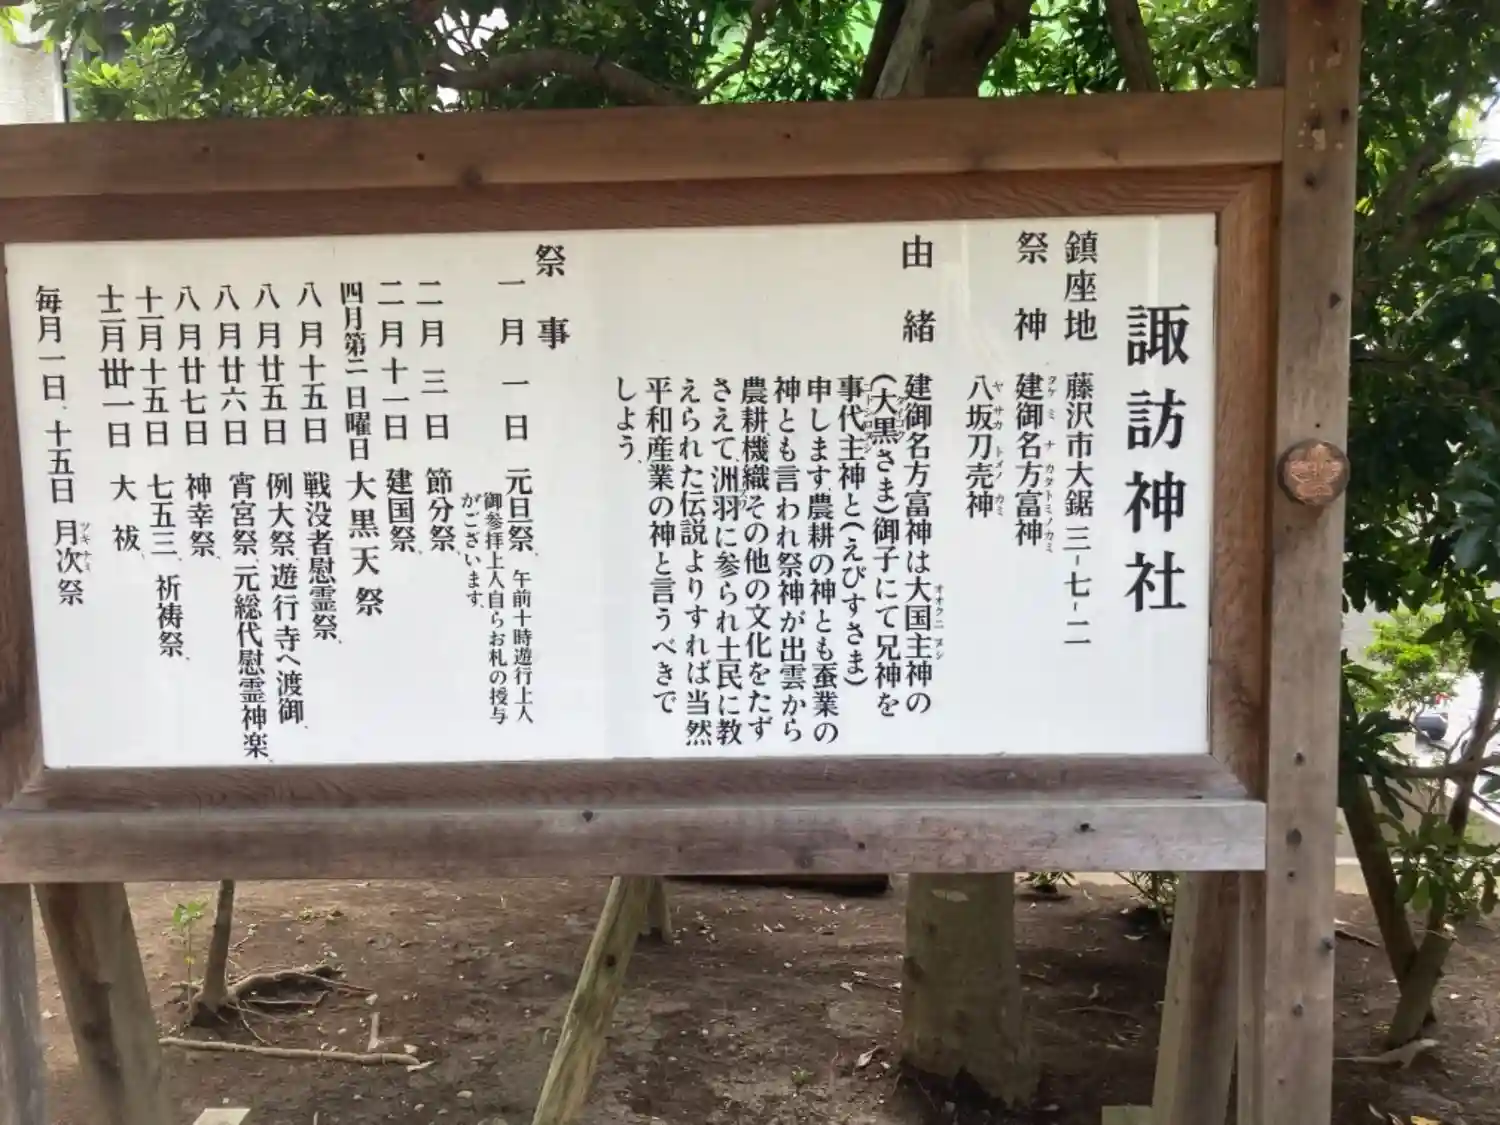 諏訪神社
鎮座地 藤沢市大鋸三-七-二
祭神 建御名方富神
タケミナカタトミノカミ
八坂刀売神
ヤサカトメノカミ
由緒 建御名方富神は大国主神の
オオクニヌシ
(大黒さま)御子にて兄神を
ダイコク
事代主神と(えびすさま)
コトシロヌシ
申します、農耕の神とも蚕業の
神とも言われ祭神が出雲から
農耕機織その他の文化をたず
さえて、洲羽に参られ土民に教
スワ
えられた伝説よりすれば当然
平和産業の神と言うべきで
しよう、
祭事
一月一日 元旦祭、午前十時遊行上人
御参拝上人自らお札の授与
がございます、
二月三日 節分祭、
二月十一日 建国祭、
四月第二日曜日 大黒天祭
八月十五日 戦没者慰霊祭、
八月廿五日 例大祭、遊行寺へ渡御、
八月廿六日 宵宮祭、元総代慰霊神楽、
八月廿七日 神幸祭、
十一月十五日 七五三、祈祷祭、
十二月卅一日 大祓、
毎月一日、十五日 月次祭
ツキナミ